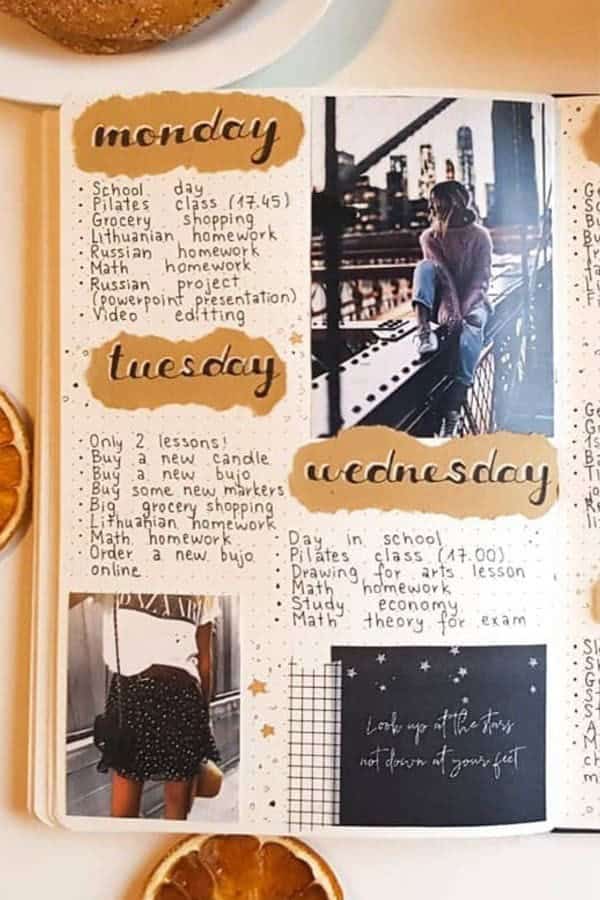 monday
• School day
• Pilates class (17.45)
• Grocery shopping
• Lithuanian homework
• Russian homework
• Math homework
• Russian project
(powerpoint presentation)
• Video editting
tuesday
• Only 2 lessons!
• Buy a new candle
• Buy a new bujo
• Buy some new markers
• Big grocery shopping
• Lithuanian homework
• Math homework
• Order a new bujo
online
wednesday
• Day in school
• Pilates class (17.00)
• Drawing for arts lesson
• Math homework
• Study economy
• Math theory for exam
Look up at the stars
not down at your feet